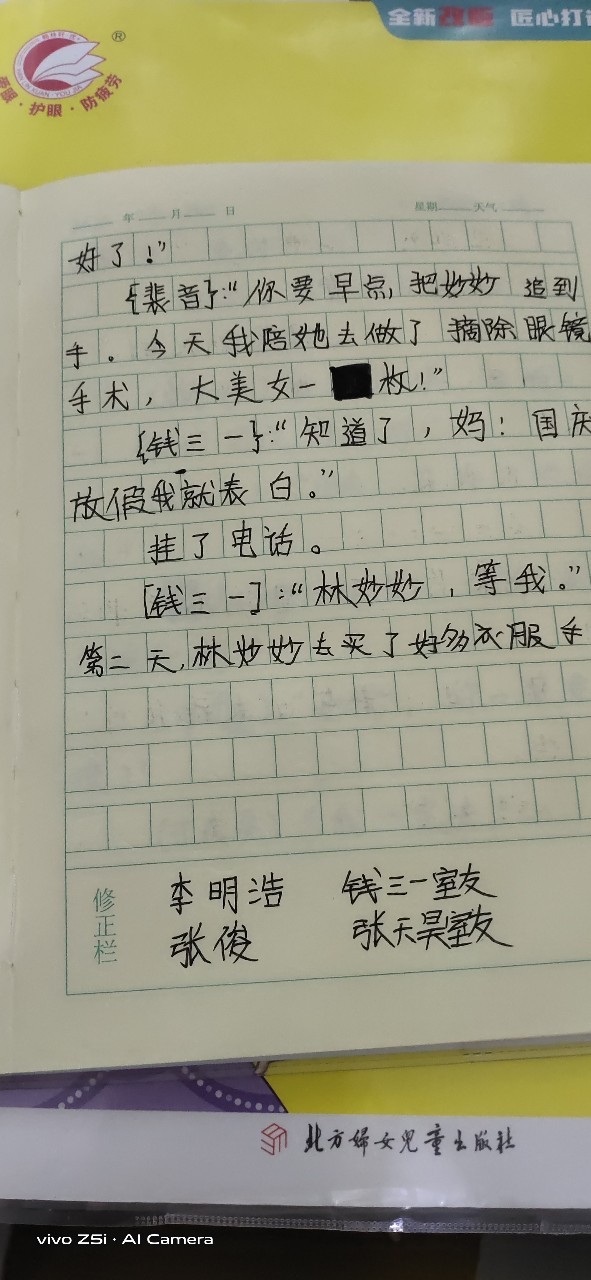 全新改版 匠心打
®
护眼·防疲劳
年 月 日 星期 天气
好了！”
{裴音}:“你要早点,把妙妙 追到
手。今天我陪她去做了 摘除眼镜
手术，大美女一 枚!”
{钱三一}:“知道了，妈！国庆
放假我就表白。”
挂了电话。
[钱三一]:“林妙妙，等我。”
第二天,林妙妙去买了好多衣服 手
修正栏
李明浩 钱三一室友
张俊 张天昊室友
北方婦女兒童出版社
vivo Z5i · AI Camera